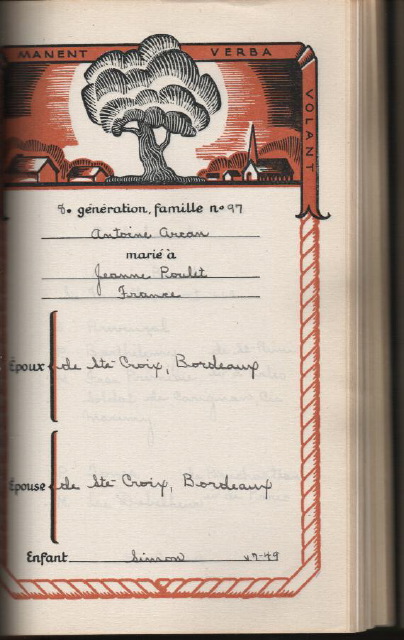 MANENT VERBA VOLANT
8e génération, famille no 97
Antoine Arcan
marié à
Jeanne Poulet
France
Époux de Ste Croix, Bordeaux
Épouse de Ste Croix, Bordeaux
Enfant Simon v7-49